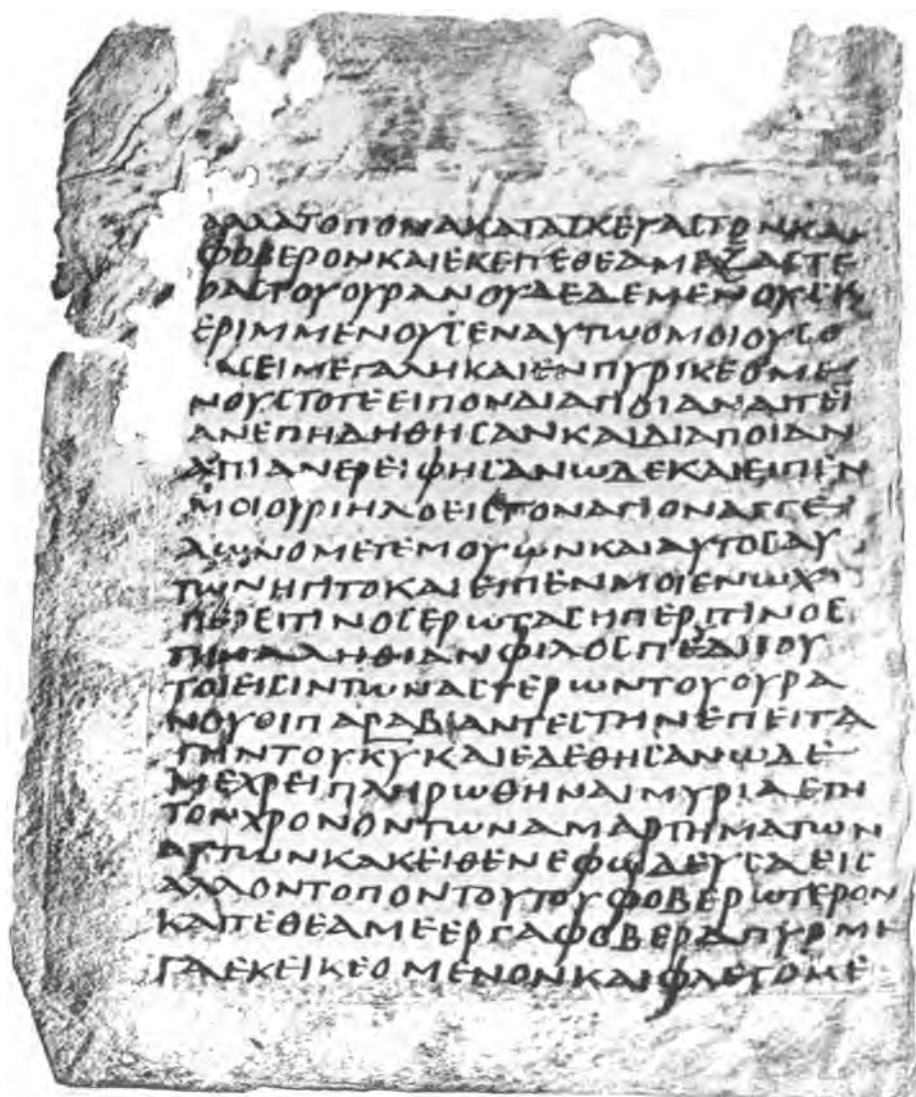 ΑΛΛΑΤΟΠΟΝΑΚΑΤΑΣΚΕΥΑϹΤΟΝΚΑΙ
ΦΟΒΕΡΟΝΚΑΙΕΚΕΠΕΘΕΑΜΕΖ̅ΑϹΤΕ
ΡΑϹΤΟΥΟΥΡΑΝΟΥΔΕΔΕΜΕΝΟΥϹΚ
ΕΡΙΜΜΕΝΟΥϹΕΝΑΥΤΩΟΜΟΙΟΥϹΟ
ΑϹΕΙΜΕΓΑΛΗΚΑΙΕΝΠΥΡΙΚΕΟΜΕ
ΝΟΥϹΤΟΤΕΕΙΠΟΝΔΙΑΠΟΙΑΝΑΙΤΕΙ
ΑΝΕΠΗΔΗΘΗϹΑΝΚΑΙΔΙΑΠΟΙΑΝ
ΑΙΤΙΑΝΕΡΕΙΦΗϹΑΝΩΔΕΚΑΙΕΙΠΕΝ
ΜΟΙΟΥΡΙΗΛΟΕΙϹΤΟΝΑΓΙΟΝΑΓΓΕ
ΛΩΝΟΜΕΤΕΜΟΥΩΝΚΑΙΑΥΤΟϹΑΥ
ΤΩΝΗΓΙΤΟΚΑΙΕΙΠΕΝΜΟΙΕΝΩΧ
ΠΕΡΕΙΤΙΝΟϹΕΡΩΤΑϹΗΠΕΡΙΤΙΝΟϹ
ΤΗΝΑΛΗΘΙΑΝΦΙΛΟϹΠΕΔΙϹΟΥ
ΤΟΙΕΙϹΙΝΤΩΝΑϹΤΕΡΩΝΤΟΥΟΥΡΑ
ΝΟΥΘΙΠΑΡΑΒΙΑΝΤΕϹΤΗΝΕΠΕΙΤΑ
ΓΗΝΤΟΥΚ̅Υ̅ΚΑΙΕΔΕΘΗϹΑΝΩΔΕ
ΜΕΧΡΕΙΠΛΗΡΩΘΗΝΑΙΜΥΡΙΑΕΤΗ
ΤΟΝΧΡΟΝΟΝΤΩΝΑΜΑΡΤΗΜΑΤΩΝ
ΑΥΤΩΝΚΑΚΕΙΘΕΝΕΦΩΔΕΥϹΑΕΙϹ
ΑΛΛΟΝΤΟΠΟΝΤΟΥΤΟΥΦΟΒΕΡΩΤΕΡΟΝ
ΚΑΙΤΕΘΕΑΜΕΕΡΓΑΦΟΒΕΡΑΠΥΡΜΕ
ΓΑΕΚΕΙΚΕΟΜΕΝΟΝΚΑΙΦΛΕΓΟΜΕ